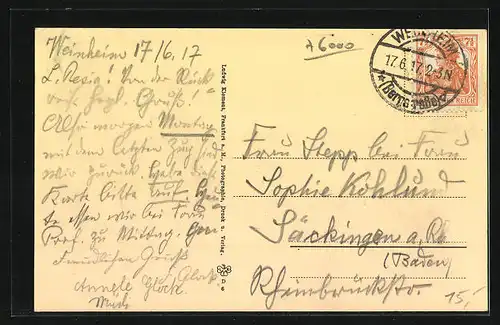 Weinheim 17/6.17
L. Resia! Von der Rück
reise herzl. Grüße!
Also morgen Montag
mit dem letzten Zug
wir zurück. habe diese
Karte bitte
te essen wir bei Frau
Prof. zu Mittag.
Freundlichen Gruß
Glock
A6000
WEINHEIM
17.6.17.2-3N
* (Bergstraße)
7½
7½
REICH
Frau Stepp bei Frau
Sophie Kohlund
Säckingen a. Rh
(Baden)
Rheinbrückstr.
15,-
Ludwig Klement, Frankfurt a. M., Photographie, Druck u. Verlag.